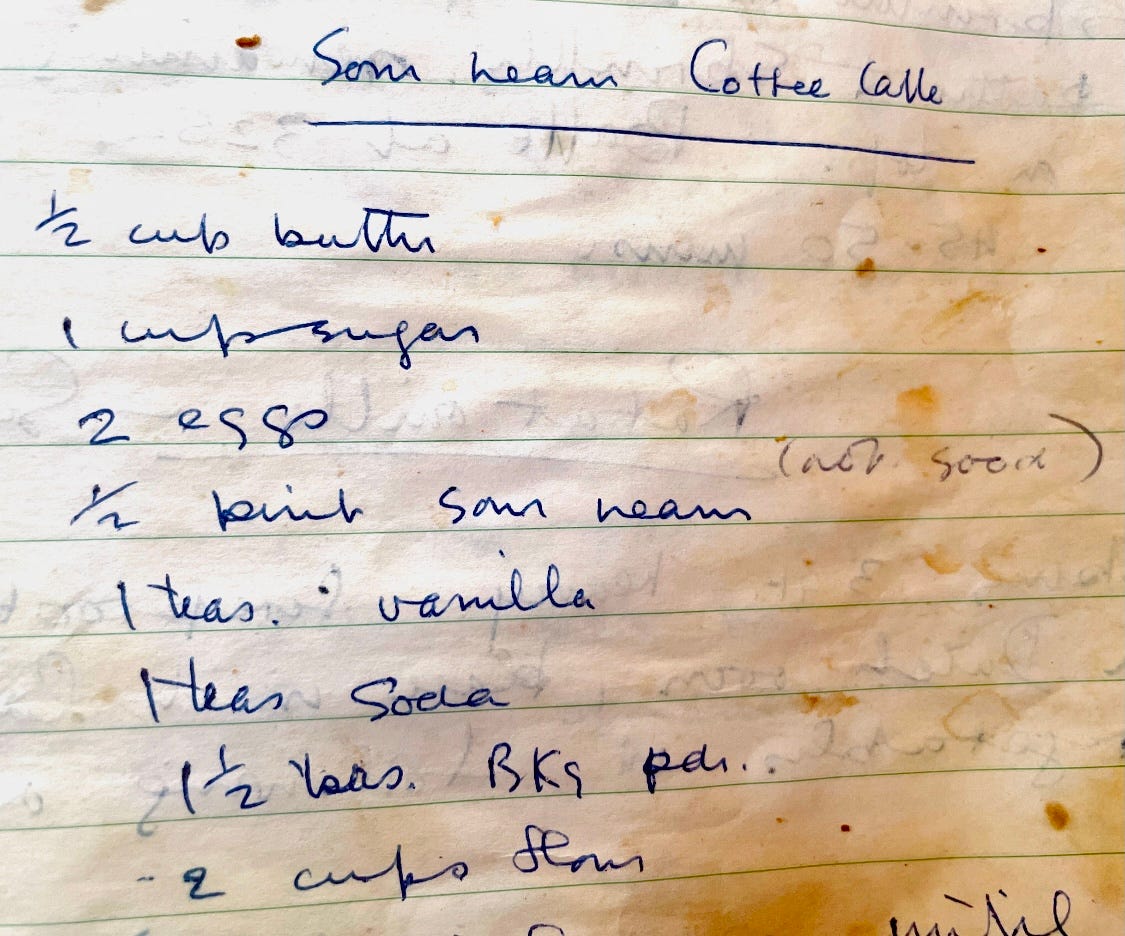 Sour cream Coffee Cake
½ cup butter
1 cup sugar
2 eggs
(not good)
½ pint sour cream
1 teas. vanilla
1 teas soda
1½ teas. BKg pdr.
2 cups flour
until